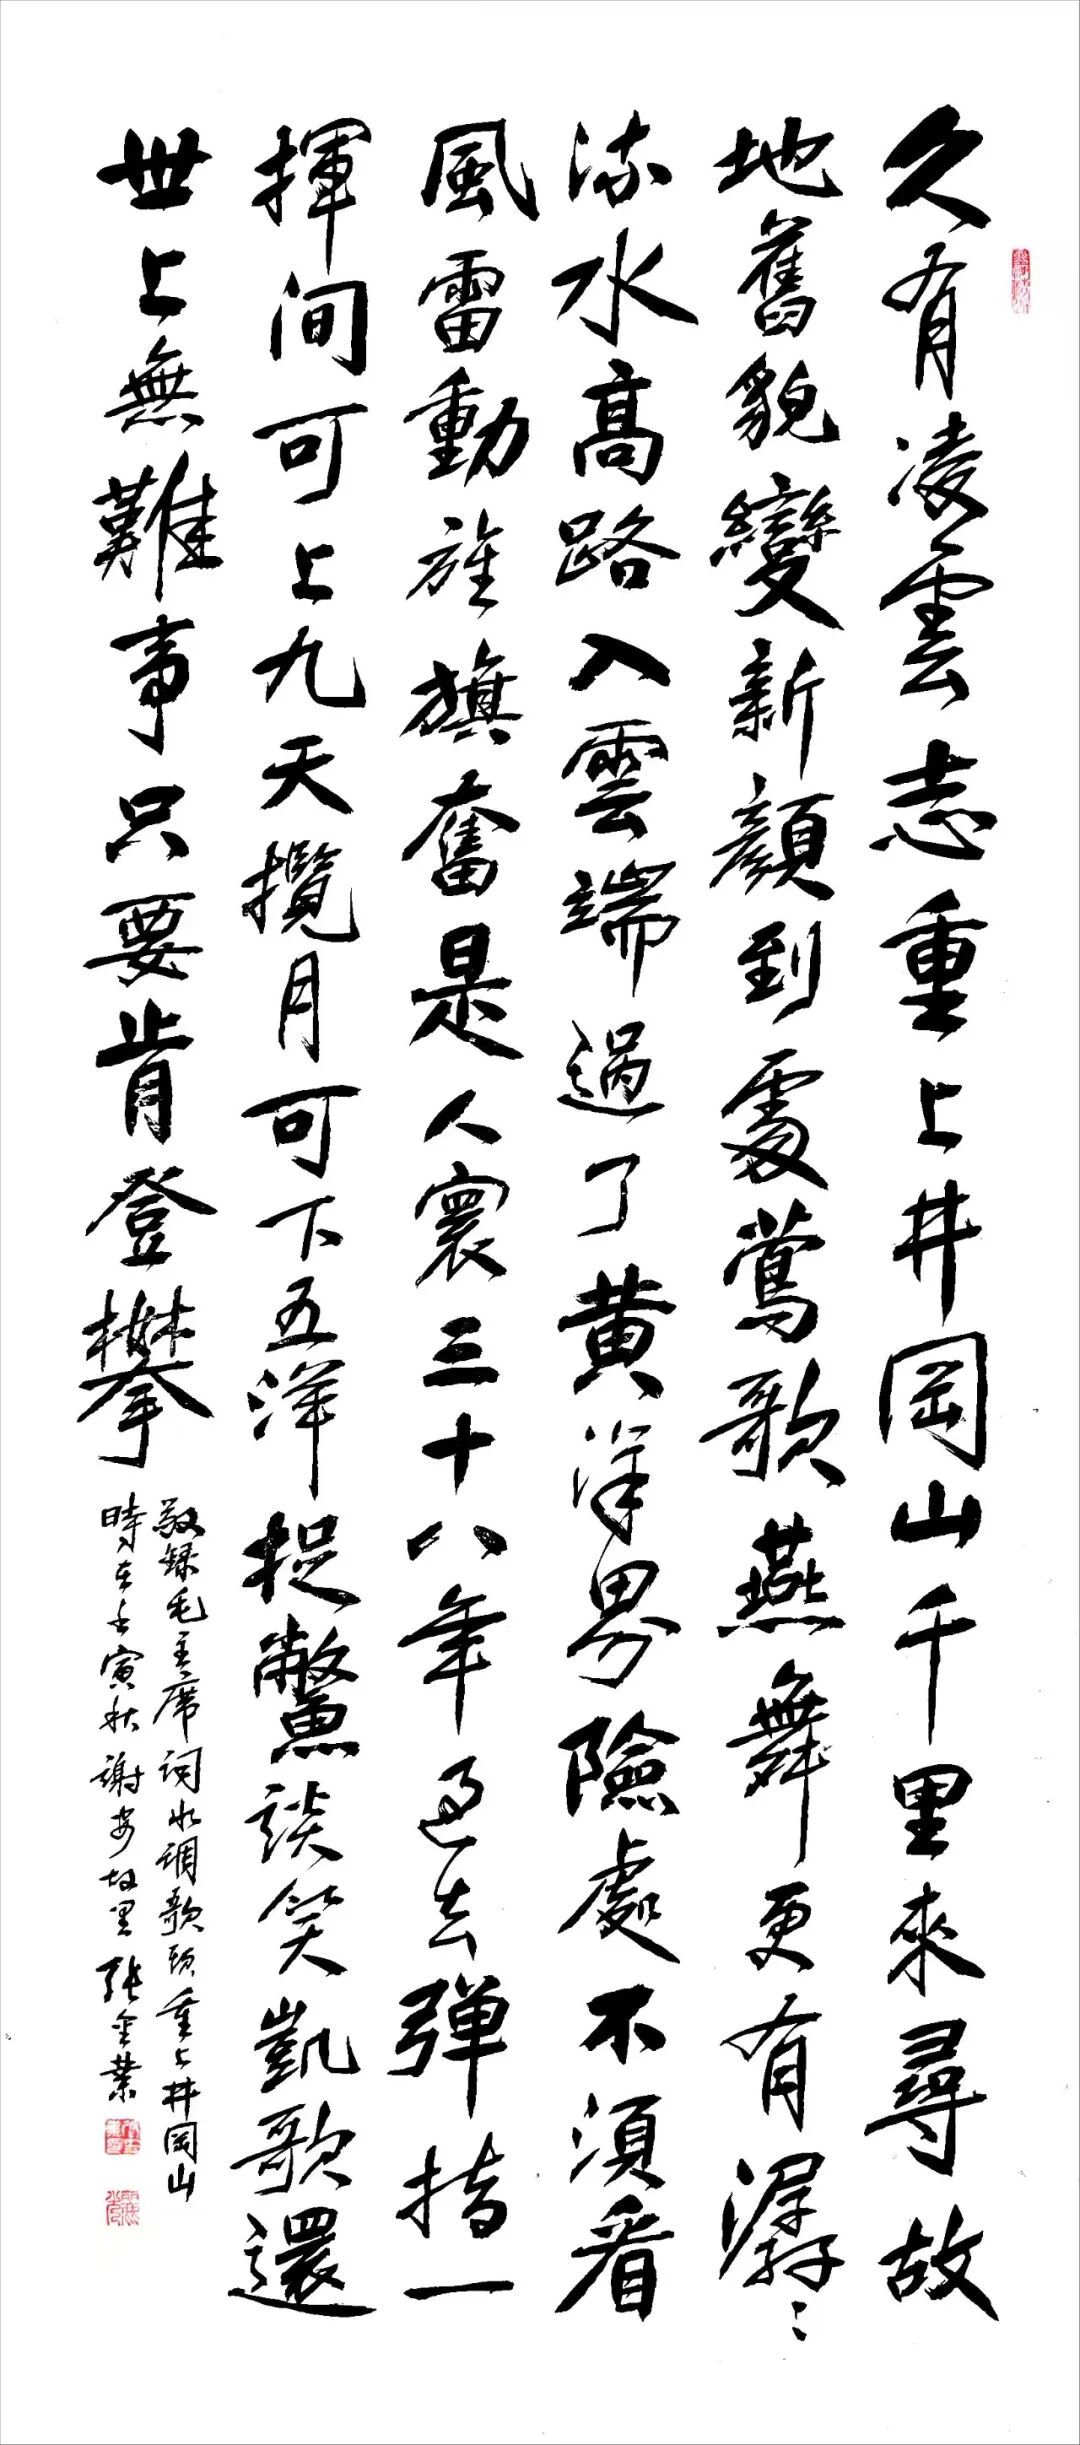 久有凌雲志重上井岡山千里來尋故
地舊貌變新顏到處鶯歌燕舞更有潺〻
流水高路入雲端過了黄洋界險處不須看
風雷動旌旗奮是人寰三十八年过去弹指一
揮间可上九天攬月可下五洋捉鱉談笑凱歌還
世上無難事只要肯登攀
敬録毛主席词水调歌頭重上井岡山
時在壬寅秋謝安故里張金業